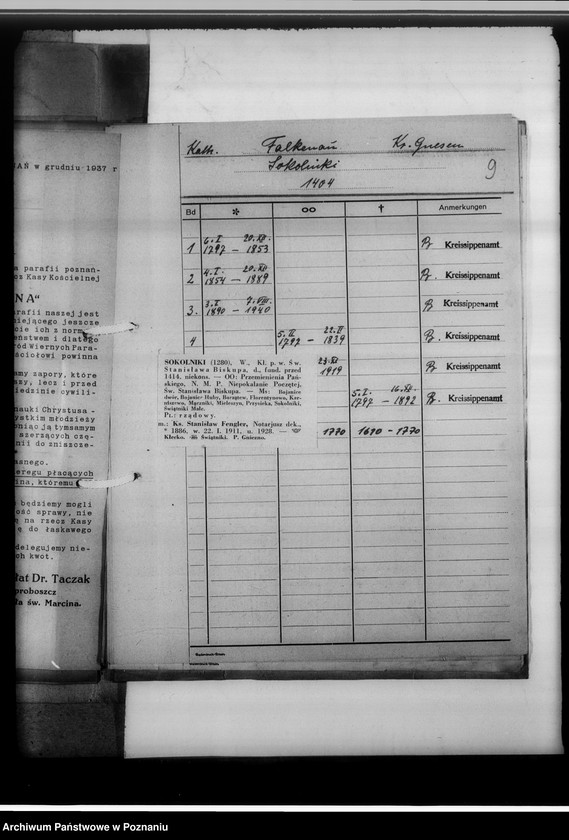 NAŃ w grudniu 1937 r
a parafii poznań-
cz Kasy Kościelnej
N A"
rafii naszej jest
iejącego jeszcze
cie ich z norm
eństwem i dlatego
ród Wiernych Para-
ściołowi powinna
my zapory, które
azy, lecz i przed
iedzinie cywili-
nauki Chrystusa -
ystkim młodzieży
niając ją tymsamym
szerzących czę-
nii do zniszcze-
snego.
eregu płacących
ina, któremu
będziemy mogli
ość sprawy, nie
ę na rzecz Kasy
ę do łaskawego
delegujemy nie-
ch kwot.
łat Dr. Taczak
proboszcz
ła św. Marcina.
Kath. Falkenau Kr. Gnesen
Sokolniki 9
1404
Bd * oo † Anmerkungen
1 6.I 1797 – 20.XII. 1853 Kreissippenamt
2 4.I. 1854 – 20.XII 1889 Kreissippenamt
3. 3.I 1890 – 7.VIII. 1940 Kreissippenamt
4 5.II 1797 – 22.II 1839 Kreissippenamt
23.XI 1919 Kreissippenamt
5.I. 1797 – 16.XII. 1892 Kreissippenamt
1770 1690 – 1770
SOKOLNIKI (1280), W., Kł. p. w. Św.
Stanisława Biskupa, d., fund. przed
1414. niekons. — OO: Przemienienia Pań-
skiego, N. M. P. Niepokalanie Poczętej,
Św. Stanisława Biskupa. — Ms: Bojanice
dwór, Bojanice Huby, Baragtew, Florentynowo, Kar-
niszewo, Mączniki, Mieleszyn, Przysieka, Sokolniki,
Świątniki Małe.
Pt.: rządowy.
m.: Ks. Stanisław Fengler, Notarjusz dek.,
* 1886. w. 22. I. 1911, u. 1928. —
Kłecko. Świątniki. P. Gniezno.
Archiwum Państwowe w Poznaniu